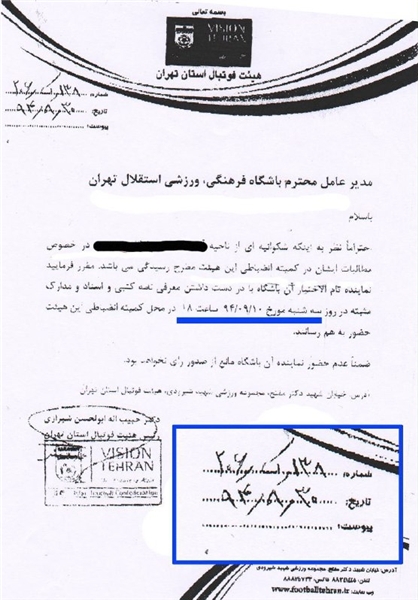 بسمه تعالی
VISION
TEHRAN
هیئت فوتبال استان تهران
شماره:
تاریخ: ۹۴،۰۹،۳۰
پیوست:
مدیر عامل محترم باشگاه فرهنگی، ورزشی استقلال تهران
باسلام
احتراماً نظر به اینکه شکوائیه ای از ناحیه در خصوص
مطالبات ایشان در کمیته انضباطی این هیئت مطرح رسیدگی می باشد. مقرر فرمایید
نماینده تام الاختیار آن باشگاه با در دست داشتن معرفی نامه کتبی و اسناد و مدارک
مثبته در روز سه شنبه مورخ ۹۴/۰۹/۱۰ ساعت ۱۸ در محل کمیته انضباطی این هیئت
حضور به هم رسانند.
ضمناً عدم حضور نماینده آن باشگاه مانع از صدور رای نخواهد بود.
آدرس: خیابان شهید دکتر مفتح، مجموعه ورزشی شهید شیرودی، هیئت فوتبال استان تهران
دکتر حبیب اله ابوالحسن شیرازی
رئیس هیئت فوتبال استان تهران
VISION
TEHRAN
شماره:
تاریخ:
پیوست:
آدرس: خیابان شهید دکتر مفتح مجموعه ورزشی شهید شیرودی
وب سایت: www.footballtehran.ir